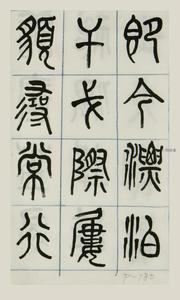 即今漂泊
干戈際屢
貌尋常行